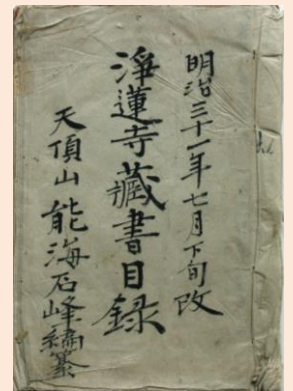 明治三十一年七月下旬改
淨蓮寺藏書目錄
天頂山能海石峰編纂